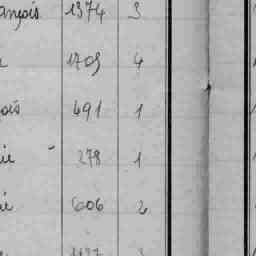 ançois 1374 3
1709 4
ois 491 1
ie 278 1
ie 606 2